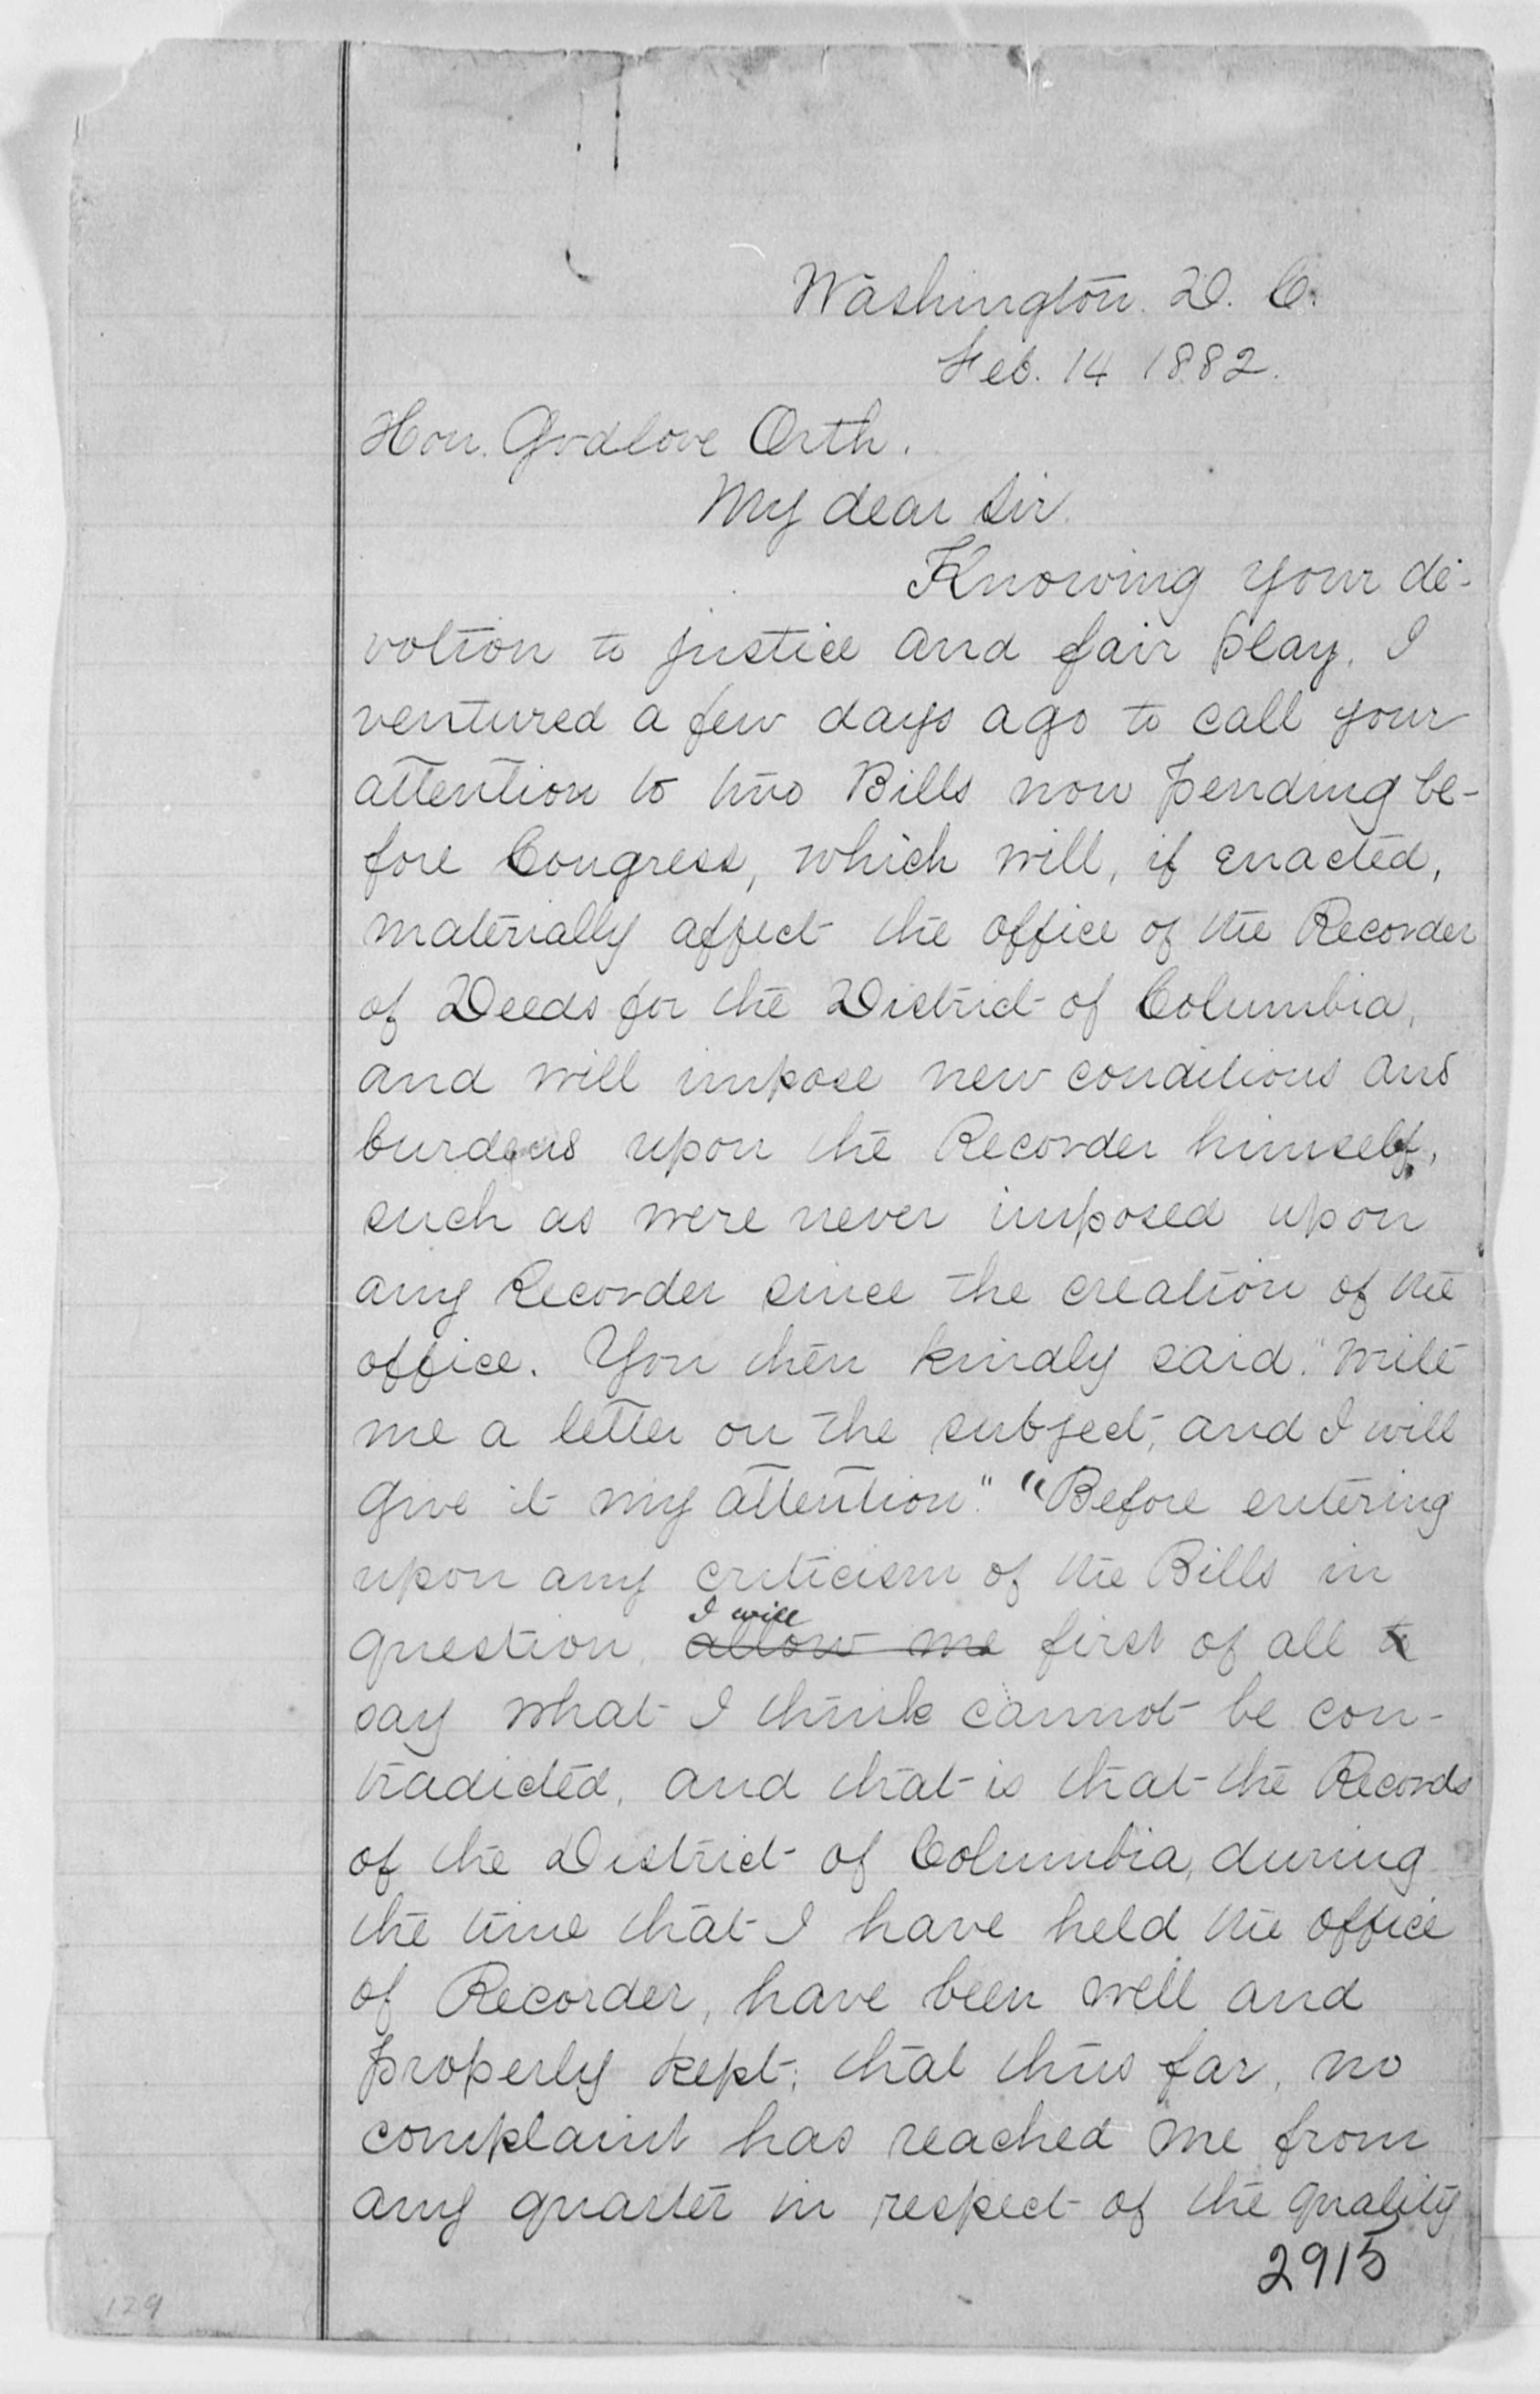 Washington. D. C.
Feb. 14 1882.
Hon. Godlove Orth.
My dear Sir.
Knowing your de-
votion to justice and fair play, I
ventured a few days ago to call your
attention to two Bills now pending be-
fore Congress, which will, if enacted,
materially affect the office of the Recorder
of Deeds for the District of Columbia,
and will impose new conditions and
burdens upon the Recorder himself,
such as were never imposed upon
any Recorder since the creation of the
office. You then kindly said. "write
me a letter on the subject, and I will
give it my attention." "Before entering
upon any criticism of the Bills in
I will
question, allow me first of all to
say what I think cannot be con-
tradicted, and that is that the Records
of the District of Columbia, during
the time that I have held the office
of Recorder, have been well and
properly kept; that thus far, no
complaint has reached me from
any quarter in respect of the quality
2915
129